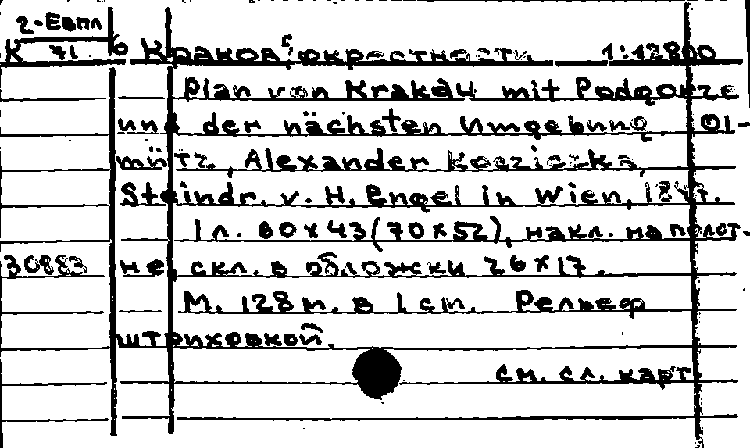 2-Евпл
К 71 б Краков, окрестности 1:12800
Plan von Krakau mit Podgorze
und der nächsten Umgebung. Ol-
mütz, Alexander
Steindr. v. H. Engel in Wien, 1847.
1 л. 60x43(70x52), накл. на полот-
30883 не, скл. в обложки 26x17.
М. 128 м. в 1 см. Рельеф
штриховкой.
см. сл. карт.